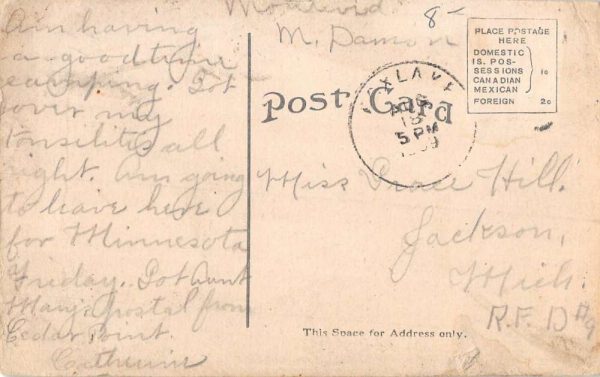 Am having
a good time
camping. Got
over my
tonsilitis all
right. Am going
to leave here
for Minnesota
Friday. Got Aunt
Mary's postal from
Cedar Point.
Catherine
M. Damon
8-
Post Card
PLACE POSTAGE
HERE
DOMESTIC
IS. POS-
SESSIONS
CANADIAN
MEXICAN
1c
FOREIGN 2c
AUG
18
5 PM
1909
Miss Grace Hill.
Jackson,
Mich.
R.F.D #9
This Space for Address only.